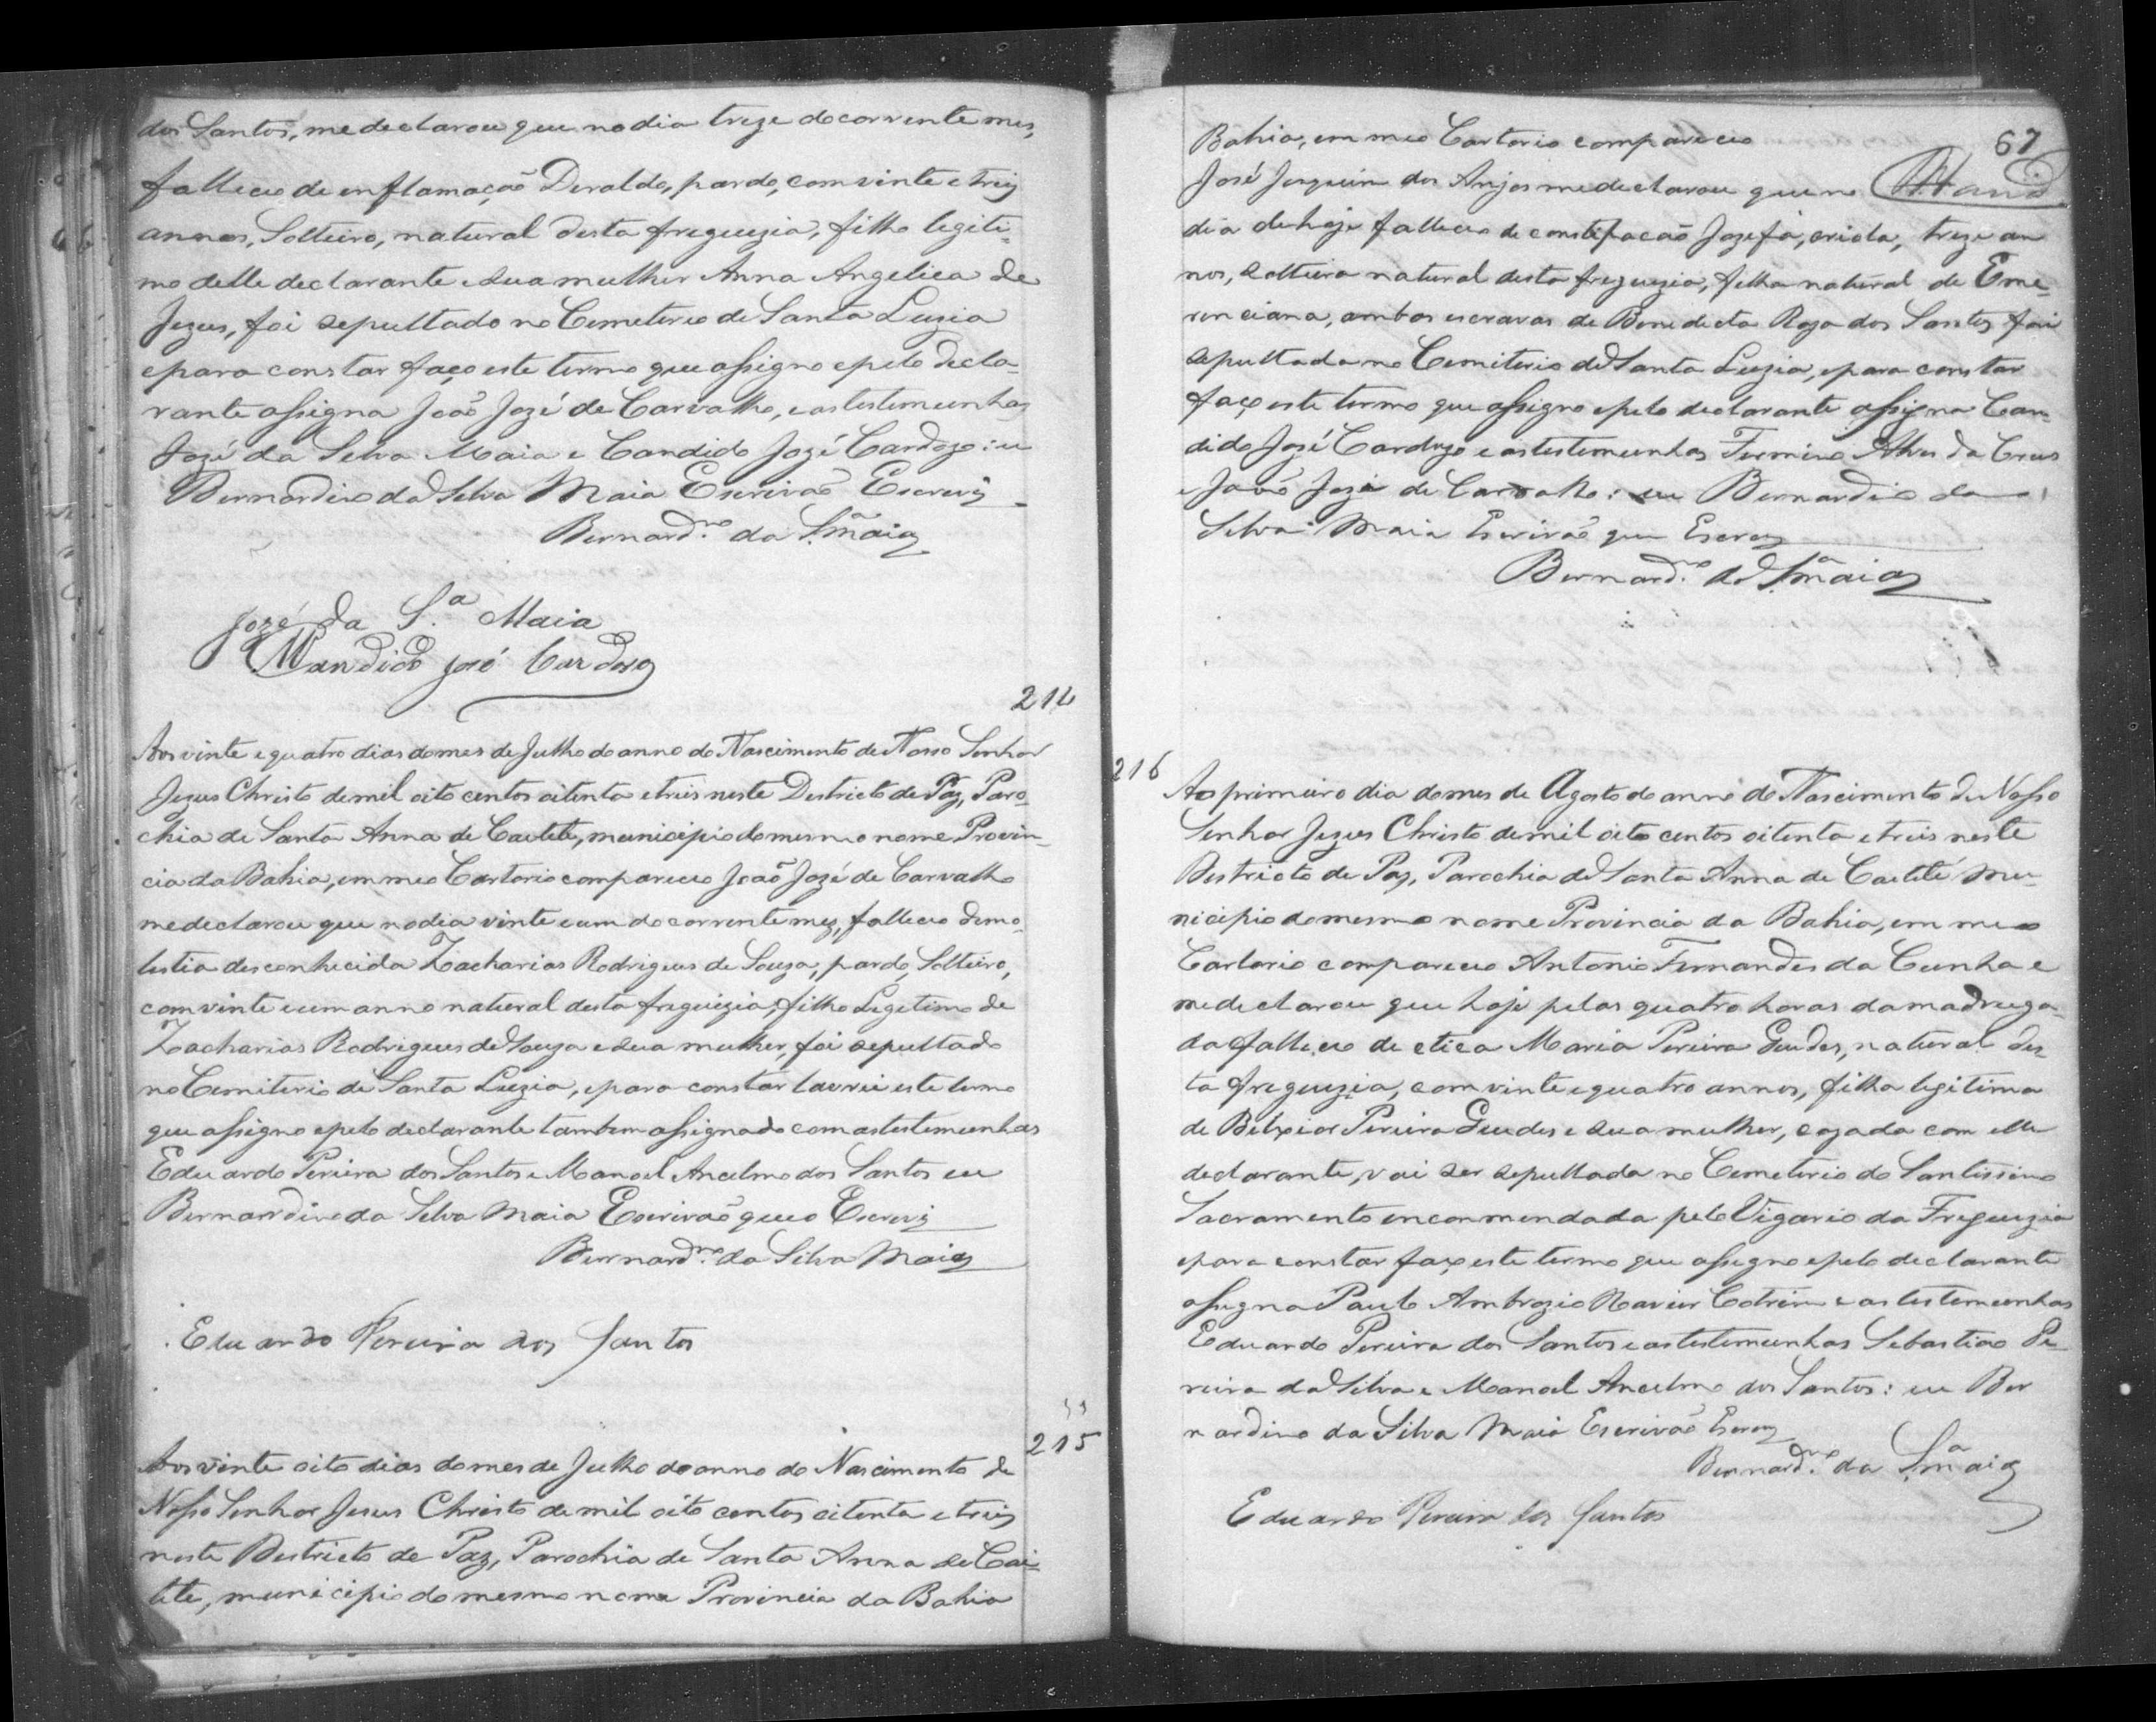 dos Santos, me declarou que no dia treze do corrente mes,
falleceo de enflamação Deraldo, pardo, com vinte e treis
annos, Solteiro, natural desta freguezia, filho legiti-
mo delle declarante e sua mulher Anna Angelica de
Jezus, foi sepultado no Cemeterio de Santa Luzia
e para constar faço este termo que assigno e pelo decla-
rante assigna João Jozé de Carvalho, e as testemunhas
Jozé da Selva Maia e Candido Jozé Cardozo: eu
Bernardino da Selva Maia Escrivão Escrevy
Bernard.no da S.a Maia
Jozé da S.a Maia
Candido José Cardoso
214
Aos vinte e quatro dias do mes de Julho do anno do Nascimento de Nosso Senhor
Jezus Christo de mil oito centos oitenta e treis neste Destricto de Paz, Paro-
chia de Santa Anna de Caetete, municipio do mesmo nome Provin-
cia da Bahia, em meo Cartorio compareceo João Jozé de Carvalho
me declarou que no dia vinte e um do corrente mez, falleceo de mo-
lestia desconhecida Zacharias Rodrigues de Souza, pardo, Solteiro,
com vinte e um anno natural desta freguezia, filho Legetimo de
Zacharias Rodrigues de Souza e sua mulher, foi sepultado
no Cemiterio de Santa Luzia, e para constar lavrei este termo
que assigno e pelo declarante tambem assignado com as testemunhas
Eduardo Pereira dos Santos e Manoel Ancelmo dos Santos eu
Bernardino da Selva Maia Escrivão que o Escrevy
Bernard.no da Silva Maia
Eduardo Pereira dos Santos
215
Aos vinte oito dias do mes de Julho do anno do Nascimento de
Nosso Senhor Jesus Christo de mil oito centos oitenta e treis
neste Destricto de Paz, Parochia de Santa Anna de Cai-
tete, municipio do mesmo nome Provincia da Bahia
67
Bahia, em meo Cartorio compareceo
José Joaquim dos Anjos me declarou que no
dia de hoje falleceo de constipacão Jozefa, criola, treze an
nos, solteira natural desta freguezia, filha natural de Eme-
renciana, ambas escravas de Benedicta Roza dos Santos foi
sepultada no Cemiterio de Santa Luzia, e para constar
faço este termo que assigno e pelo declarante assigna Can-
dido José Cardozo e as testemunhas Fermino Alves da Crus
e João Jozé de Carvalho: eu Bernardino da
Selva Maia Escrivão que Escrevy
Bernard.no da S.a Maia
216
Ao primeiro dia do mes de Agosto do anno do Nascimento de Nosso
Senhor Jezus Christo de mil oito centos oitenta e treis neste
Destricto de Paz, Parochia de Santa Anna de Caetité mu-
nicipio do mesmo nome Provincia da Bahia, em meo
Cartorio compareceo Antonio Fernandes da Cunha e
me declarou que hoje pelas quatro horas da madruga-
da falleceo de etica Maria Pereira Guedes, natural des-
ta freguezia, com vinte e quatro annos, filha legitima
de Belxior Pereira Guedes e sua mulher, cazada com elle
declarante, vai ser sepultada no Cemeterio do Santissimo
Sacramento encommendada pelo Vigario da Freguezia
e para constar faço este termo que assigno e pelo declarante
assigna Paulo Ambrozio Xavier Cotrim e as testemunhas
Eduardo Pereira dos Santos e as testemunhas Sebastião Pe-
reira da Silva e Manoel Ancelmo dos Santos: eu Ber
nardino da Silva Maia Escrivão Escrevy
Bernard.no da S.a Maia
Eduardo Pereira dos Santos